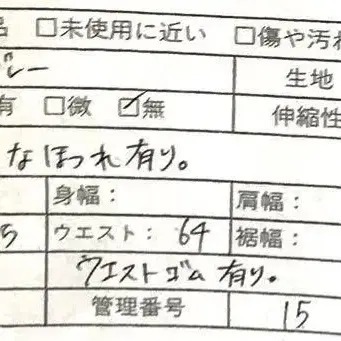 □未使用に近い □傷や汚れ
グレー 生地
有 □微 ☑無 伸縮性
なほつれ有り。
身幅： 肩幅：
5 ウエスト： 64 裾幅：
ウエストゴム有り。
管理番号 15